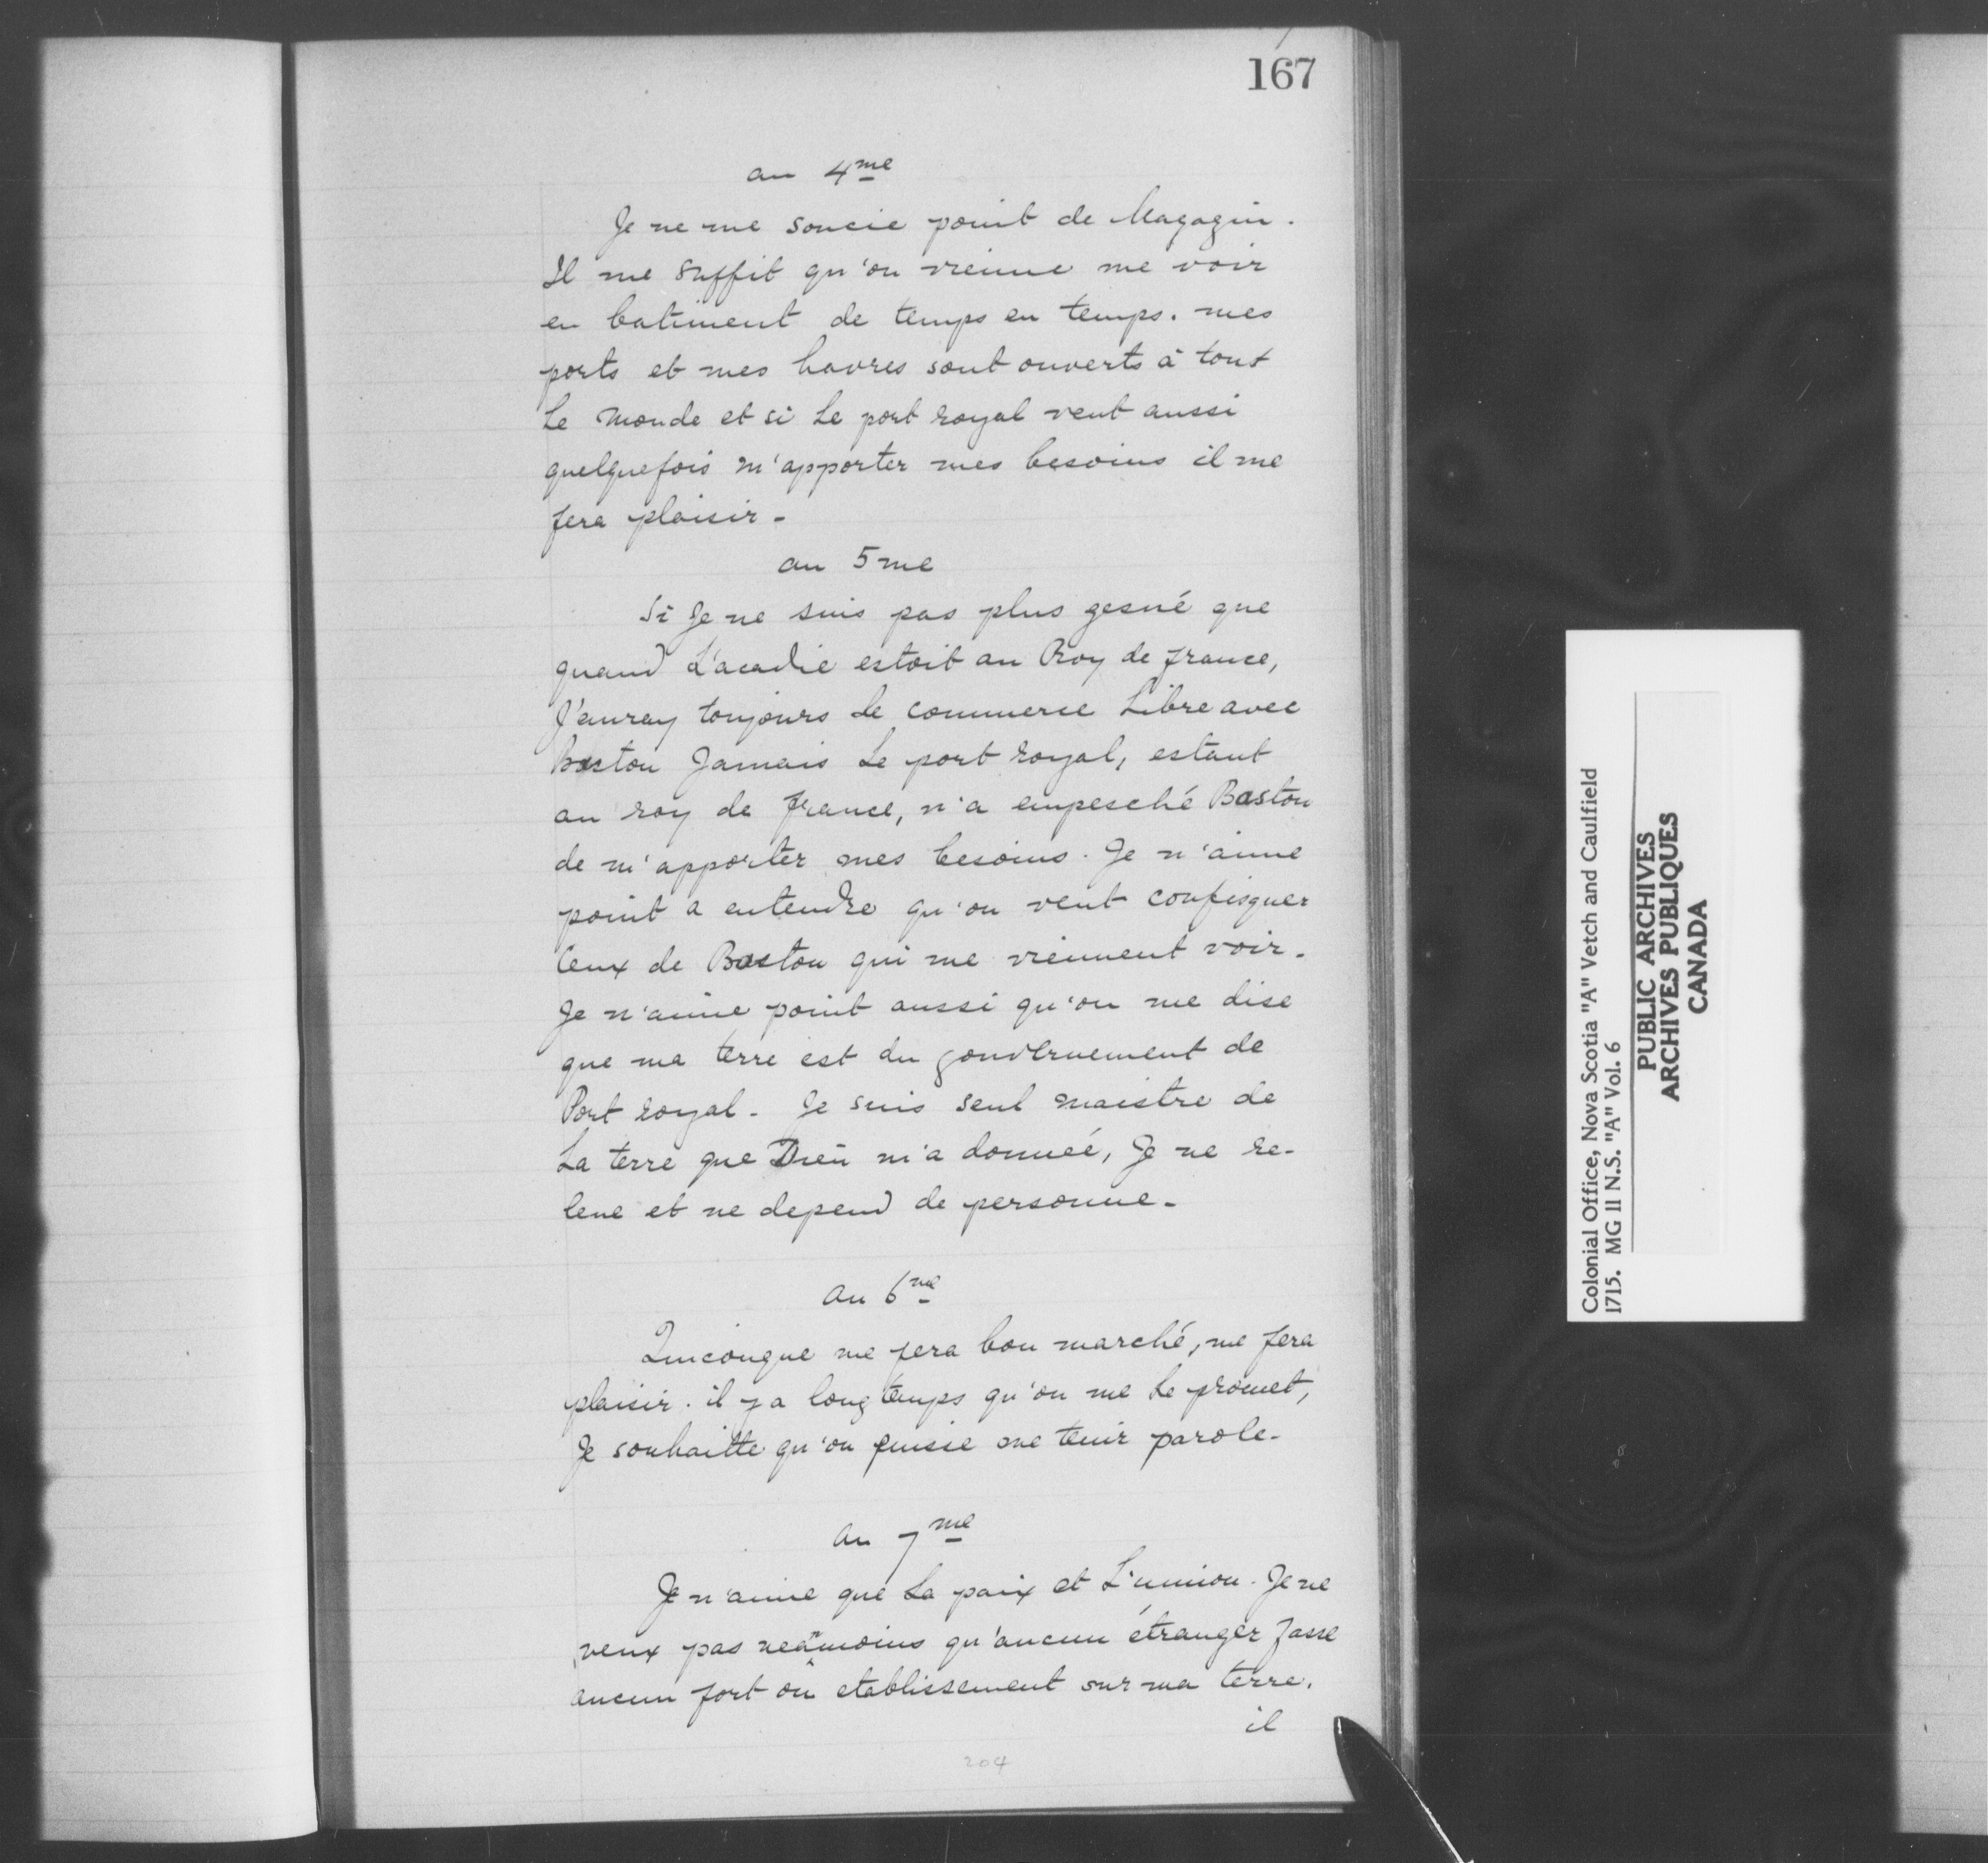 167
au 4me
Je ne me soucie point de Magazin.
Il me suffit qu'on vienne me voir
en batiment de temps en temps. mes
ports et mes havres sont ouverts à tout
Le Monde et si Le port royal veut aussi
quelquefois m'apporter mes besoins il me
fera plaisir -
au 5me
Si Je ne suis pas plus gesné que
quand L'acadie estoit au Roy de france,
J'auray toujours le commerce Libre avec
Baston Jamais Le port royal, estant
au roy de france, n'a empesché Baston
de m'apporter mes besoins. Je n'aime
point a entendre qu'on veut confisquer
Ceux de Baston qui me viennent voir.
Je n'aime point aussi qu'on me dise
que ma terre est du gouvernement de
Port royal - Je suis seul maistre de
La terre que Dieu m'a donneé, Je ne re-
leve et ne depend de personne -
Au 6me
Quiconque me fera bon marché, me fera
plaisir. il y a longtemps qu'on me Le promet,
Je souhaitte qu'on puisse me tenir parole -
Au 7me
Je n'aime que La paix et L'union. Je ne
veux pas neanmoins qu'aucun étranger fasse
aucun fort ou etablissement sur ma terre.
il
204
Colonial Office, Nova Scotia "A" Vetch and Caulfield
1715. MG 11 N.S. "A" Vol. 6
PUBLIC ARCHIVES
ARCHIVES PUBLIQUES
CANADA